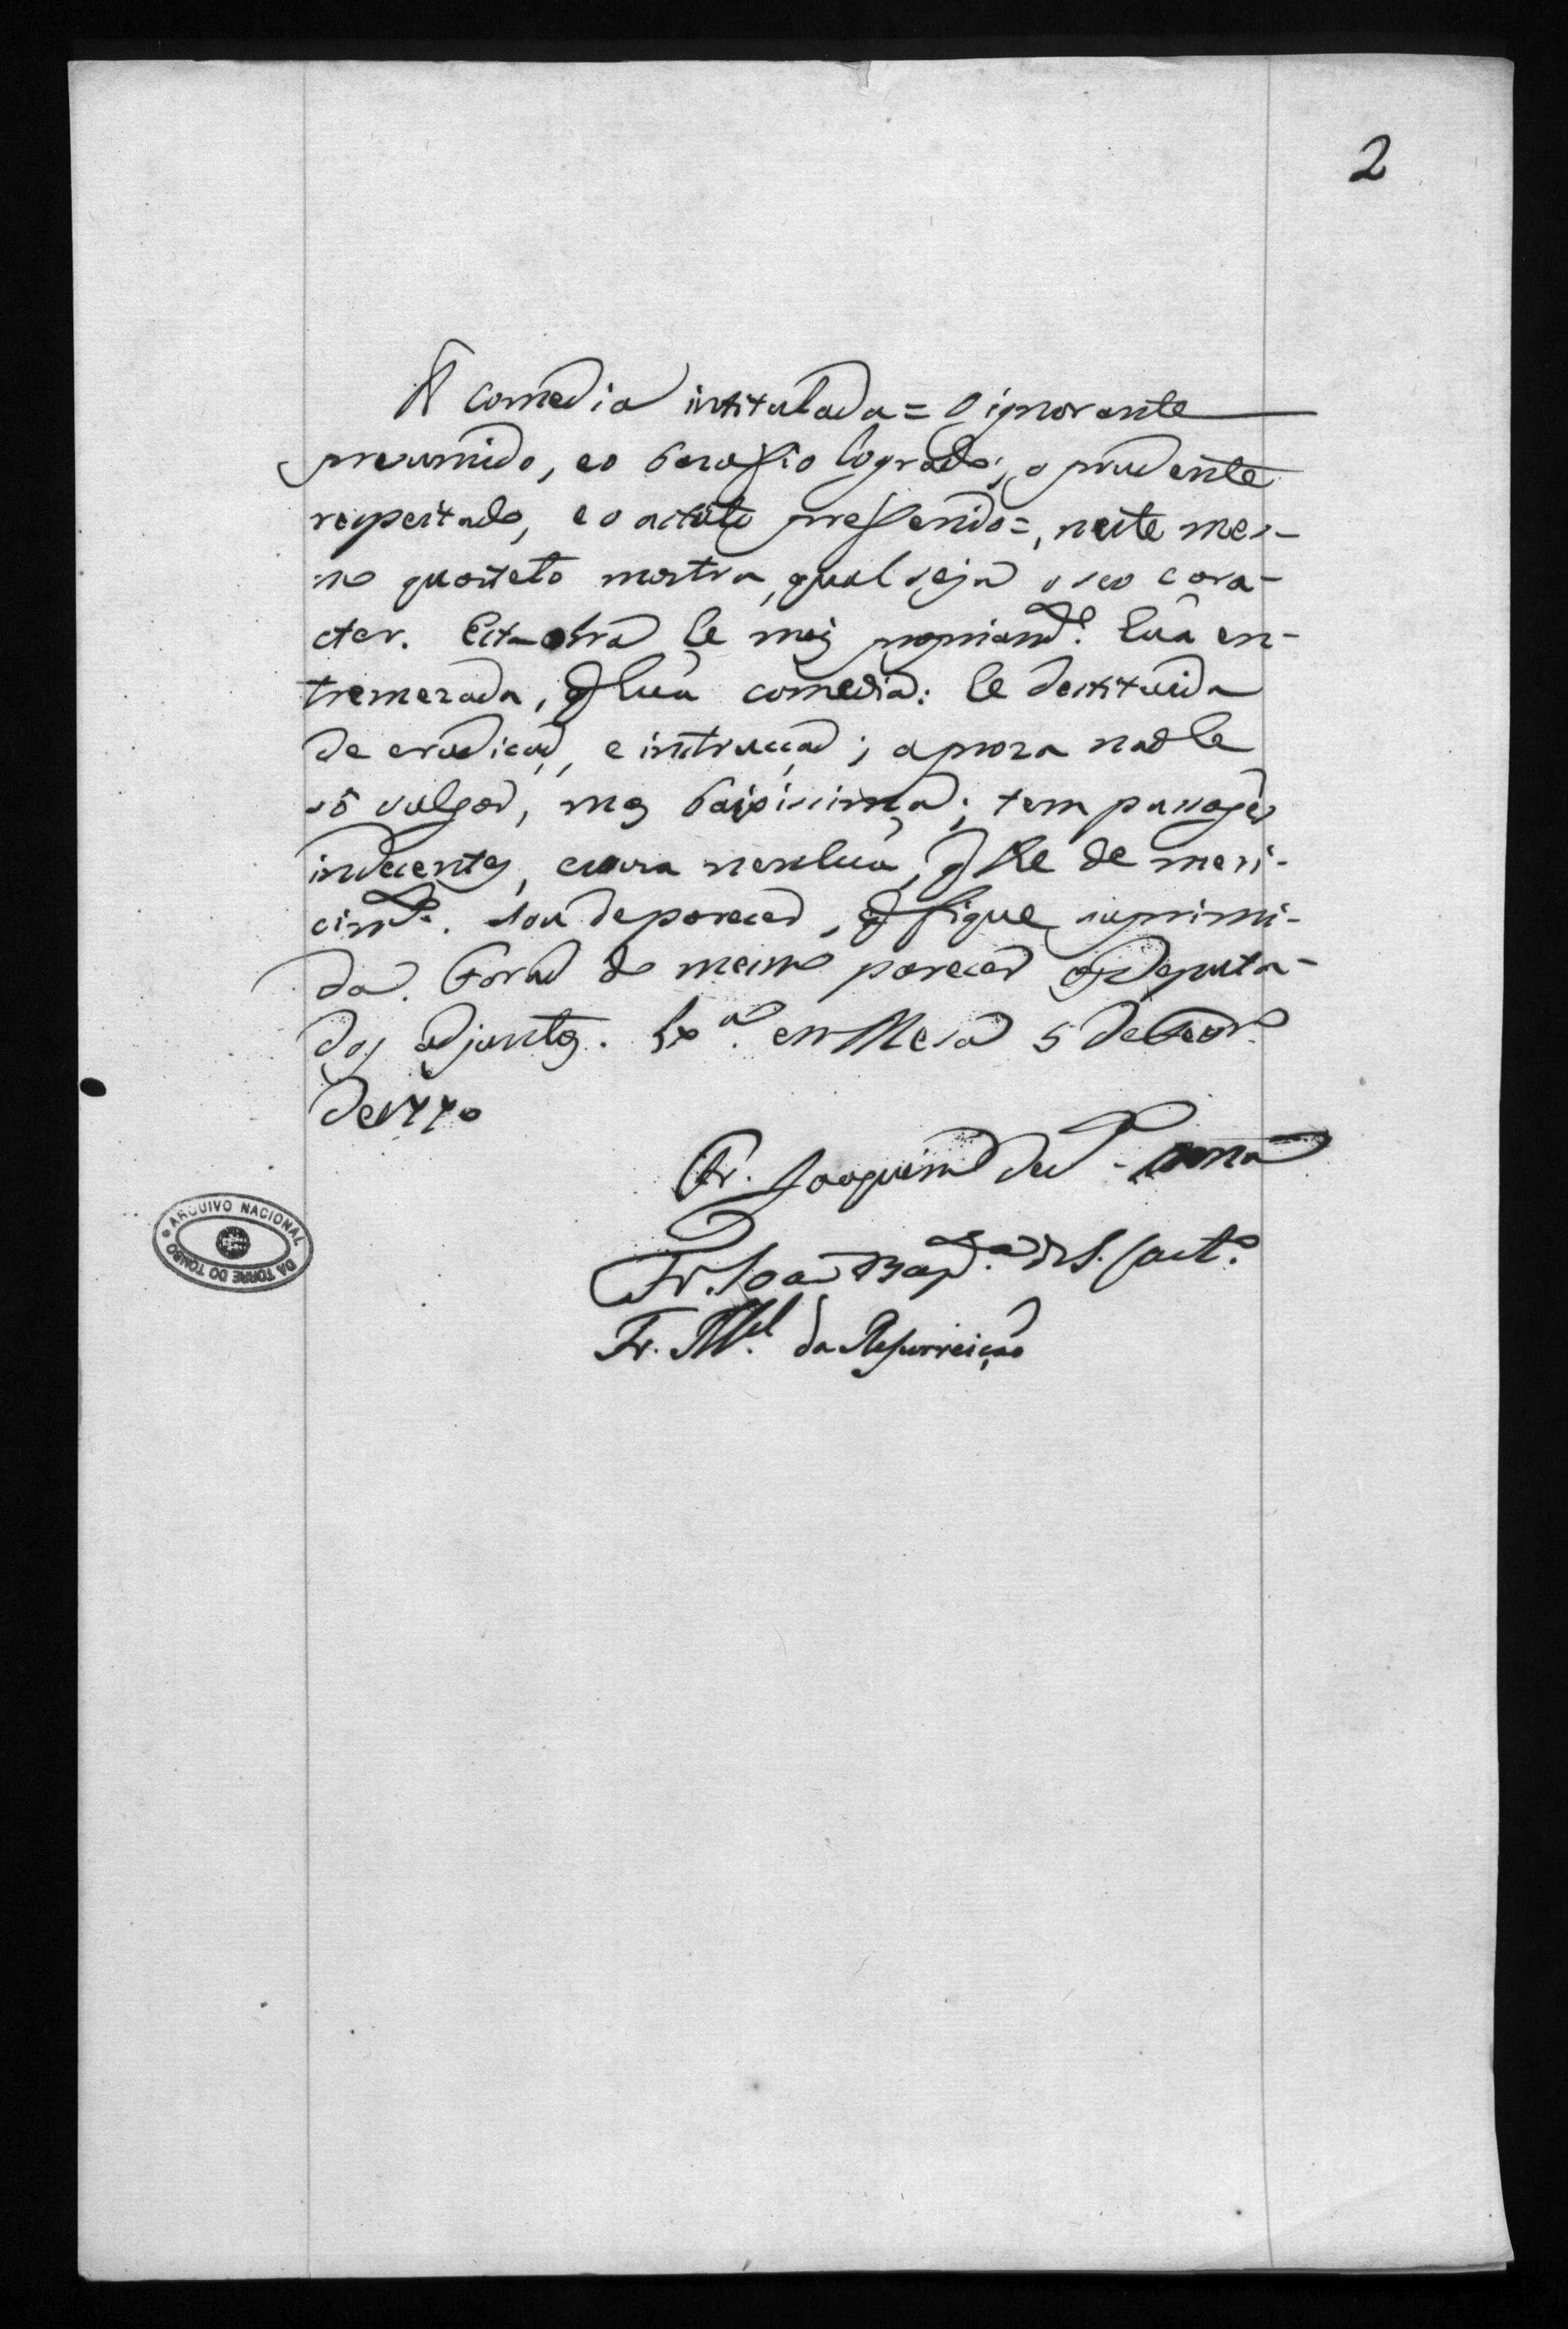 2
A comedia intitulada = O ignorante
prezumido, e o barofio logrado; o prudente
respeitado, e o astuto preferido =, neste mes-
mo quarteto mostra, qual seja o seo cara-
cter. Esta obra he mais propriamte. hũa en-
tremezada, q hũa comedia: he destituida
de erudicaõ, e instrucçaõ; a proza naõ he
só vulgar, mas baixissima; tem passagẽs
indecentes, e couza nenhũa, q he de meri-
cimto. Sou de parecer, q fique suprimi-
da. Foraõ do mesmo parecer os Deputa-
dos adjuntos. Lxa. em Meza 5 de
de 1770
Fr. Joaquim de S. Anna
Fr. Joaõ Bapta. de S. Caet.o
Fr. Mel. da Resurreição
ARQUIVO NACIONAL DA TORRE DO TOMBO